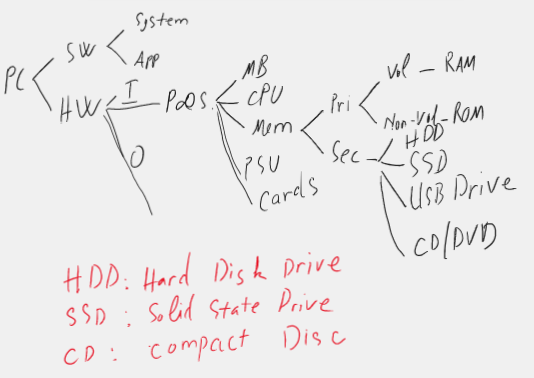 System
SW
App
PC
HW
I
O
PoOS.
MB
CPU
Mem
PSU
Cards
Pri
Sec
Vol - RAM
Non-Vol-ROM
HDD
SSD
USB Drive
CD/DVD
HDD: Hard Disk Drive
SSD: Solid State Drive
CD: Compact Disc